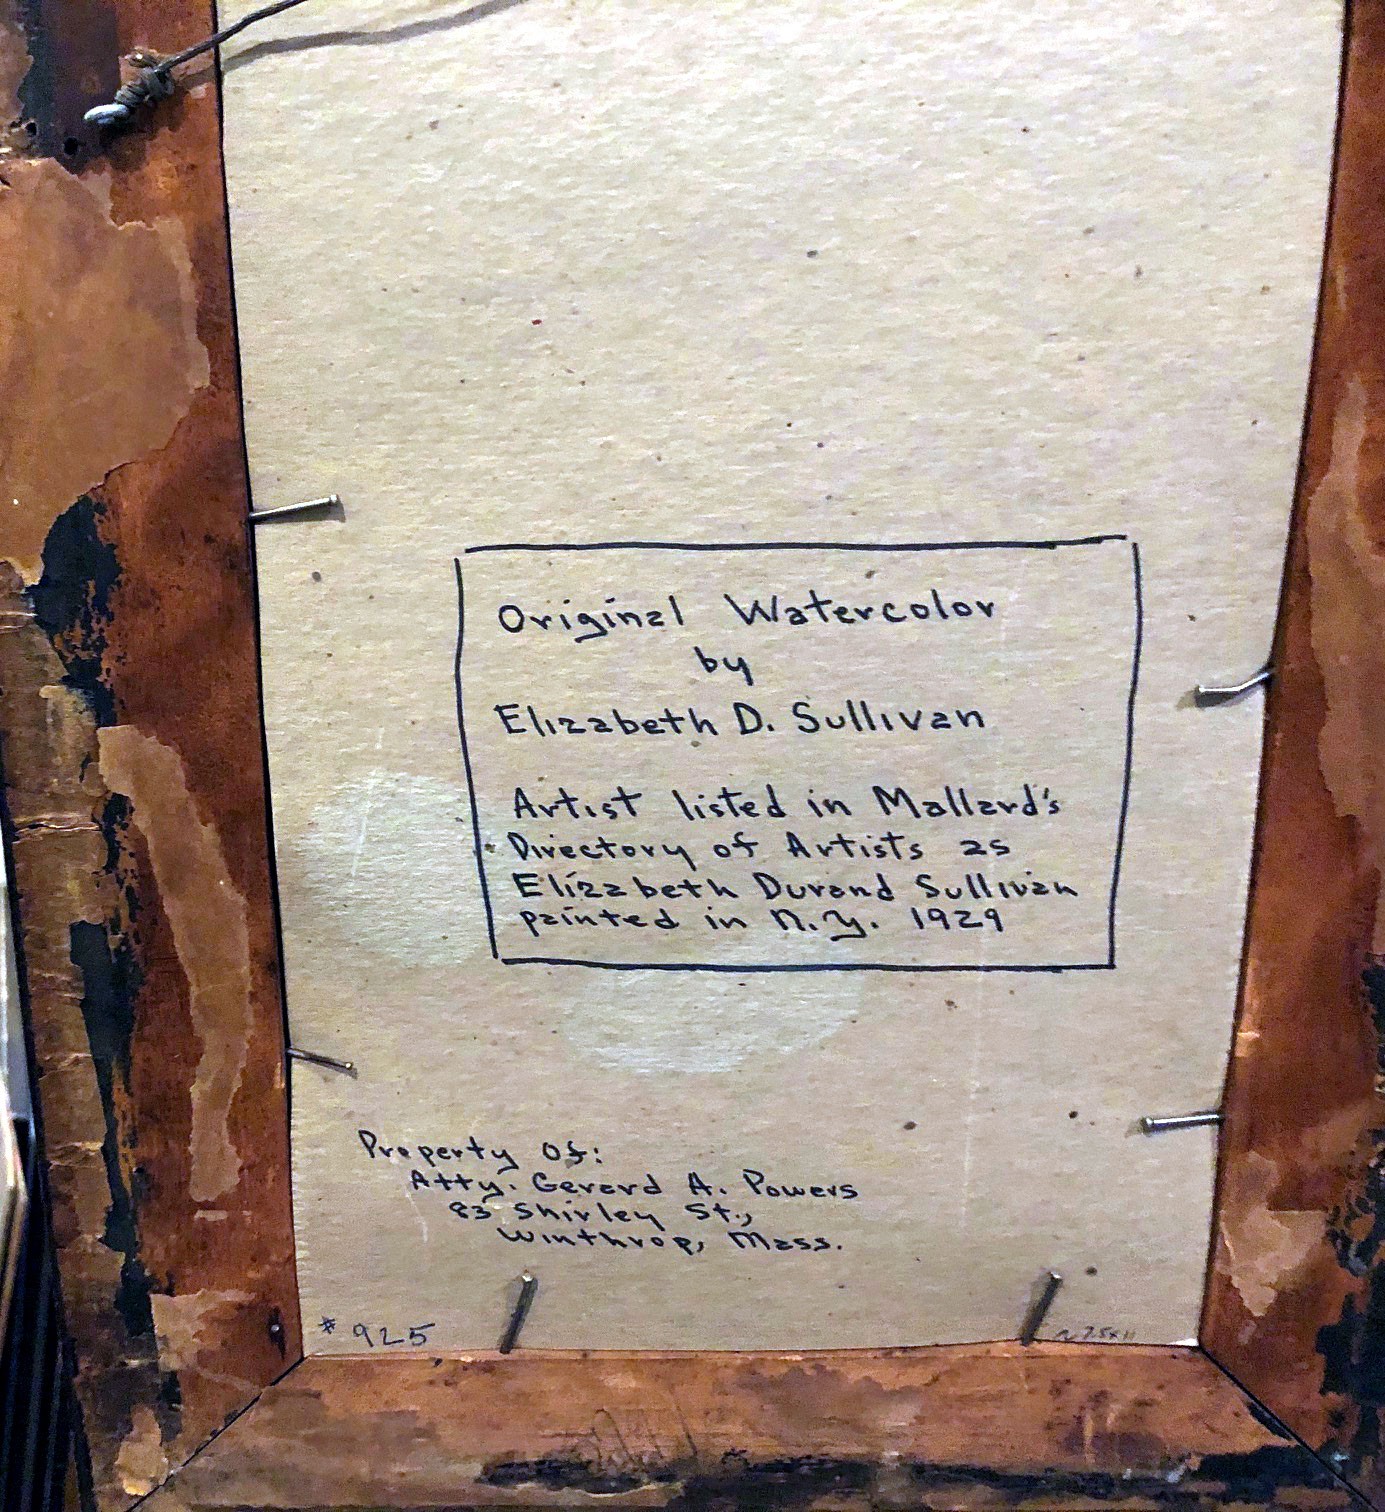 Original Watercolor
by
Elizabeth D. Sullivan
Artist listed in Mallard's
Directory of Artists as
Elizabeth Durand Sullivan
painted in N.Y. 1929
Property Of:
Atty. Gerard A. Powers
83 Shirley St.,
Winthrop, Mass.
# 925